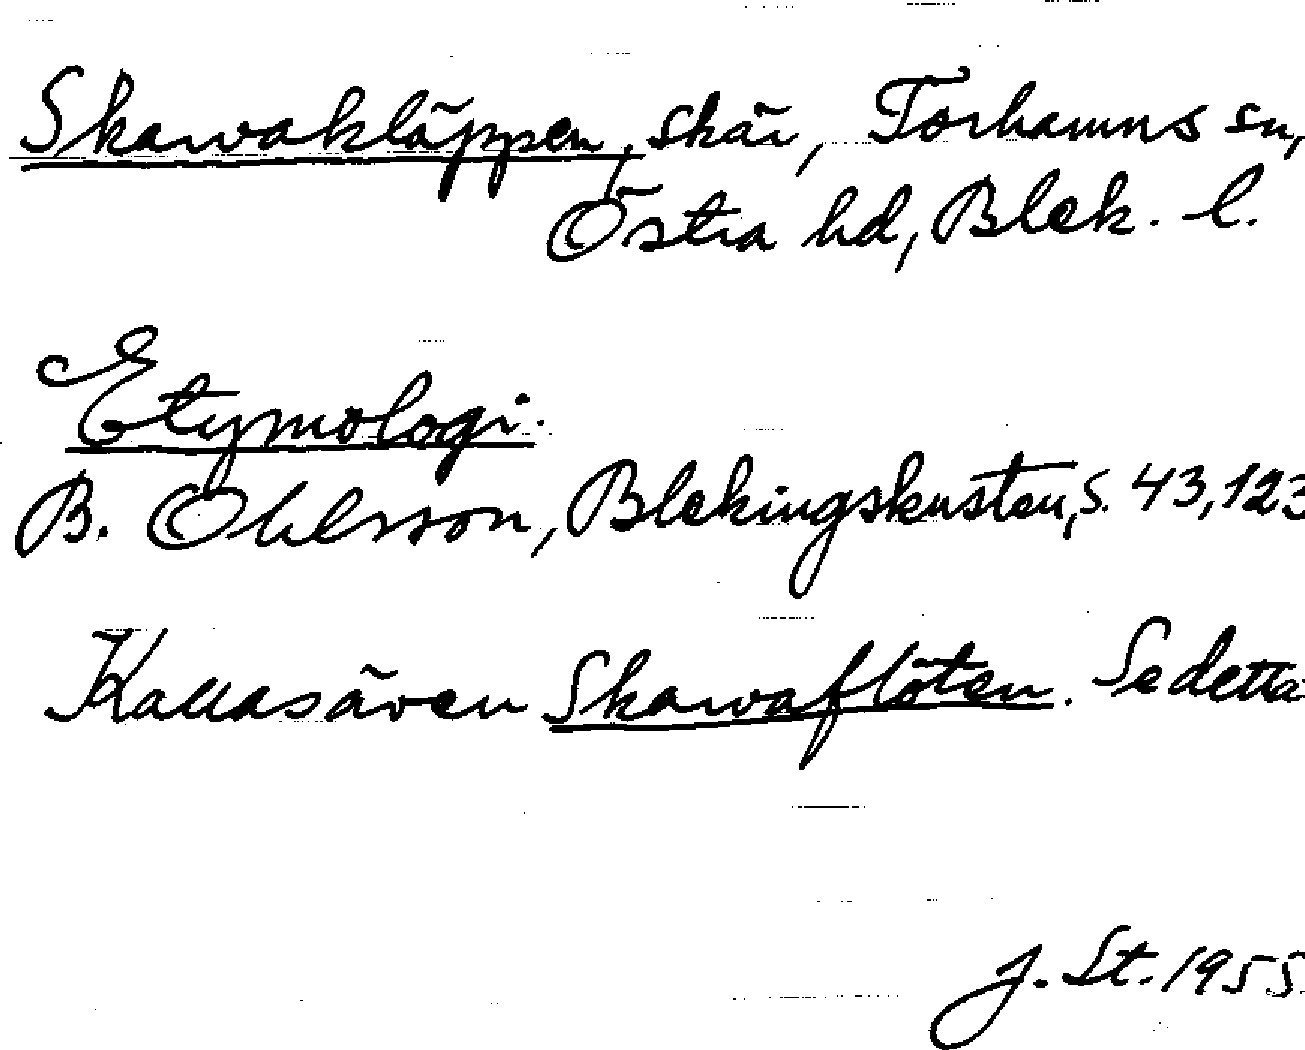 Skarvakläppen, skär, Torhamns sn,
Östra hd, Blek. l.
Etymologi.
B. Ohlsson, Blekingskusten, s. 43, 123
Skarvaflöten. Se detta
J. St. 1955